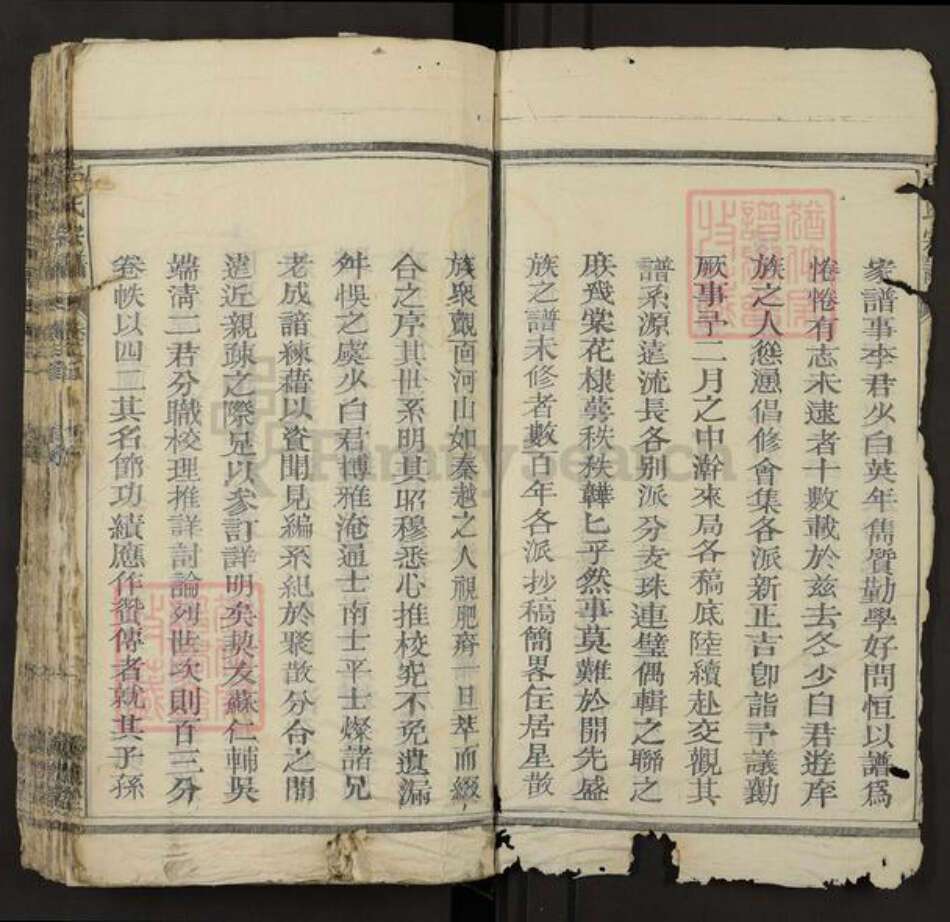 家譜事李君少白英年雋質勤學好問恒以譜爲
惓惓有志未逮者十數載於兹去冬少白君遊庠
族之人慫慂倡修會集各派新正吉卽詣予議勷
厥事予二月之中澣來局各稿底陸續赴交觀其
譜系源遠流長各別派分支珠連璧偶輯之聯之
庶幾棠花棣萼秩秩韡匕乎然事莫難於開先盛
族之譜未修者數百年各派抄稿簡畧住居星散
族衆觀面河山如秦越之人視肥瘠一旦萃而綴
合之序其世系明其昭穆悉心推校究不免遺漏
舛悞之虞少白君博雅淹通士南士平士燦諸兄
老成諳練藉以資聞見編系紀於聚散分合之間
遠近親疎之際足以參訂詳明矣契友蘇仁輔吳
端清二君分職校理推詳討論列世次則百三分
卷帙以四二其名節功績應作贊傳者就其子孫
氏宗譜
FamilySearch